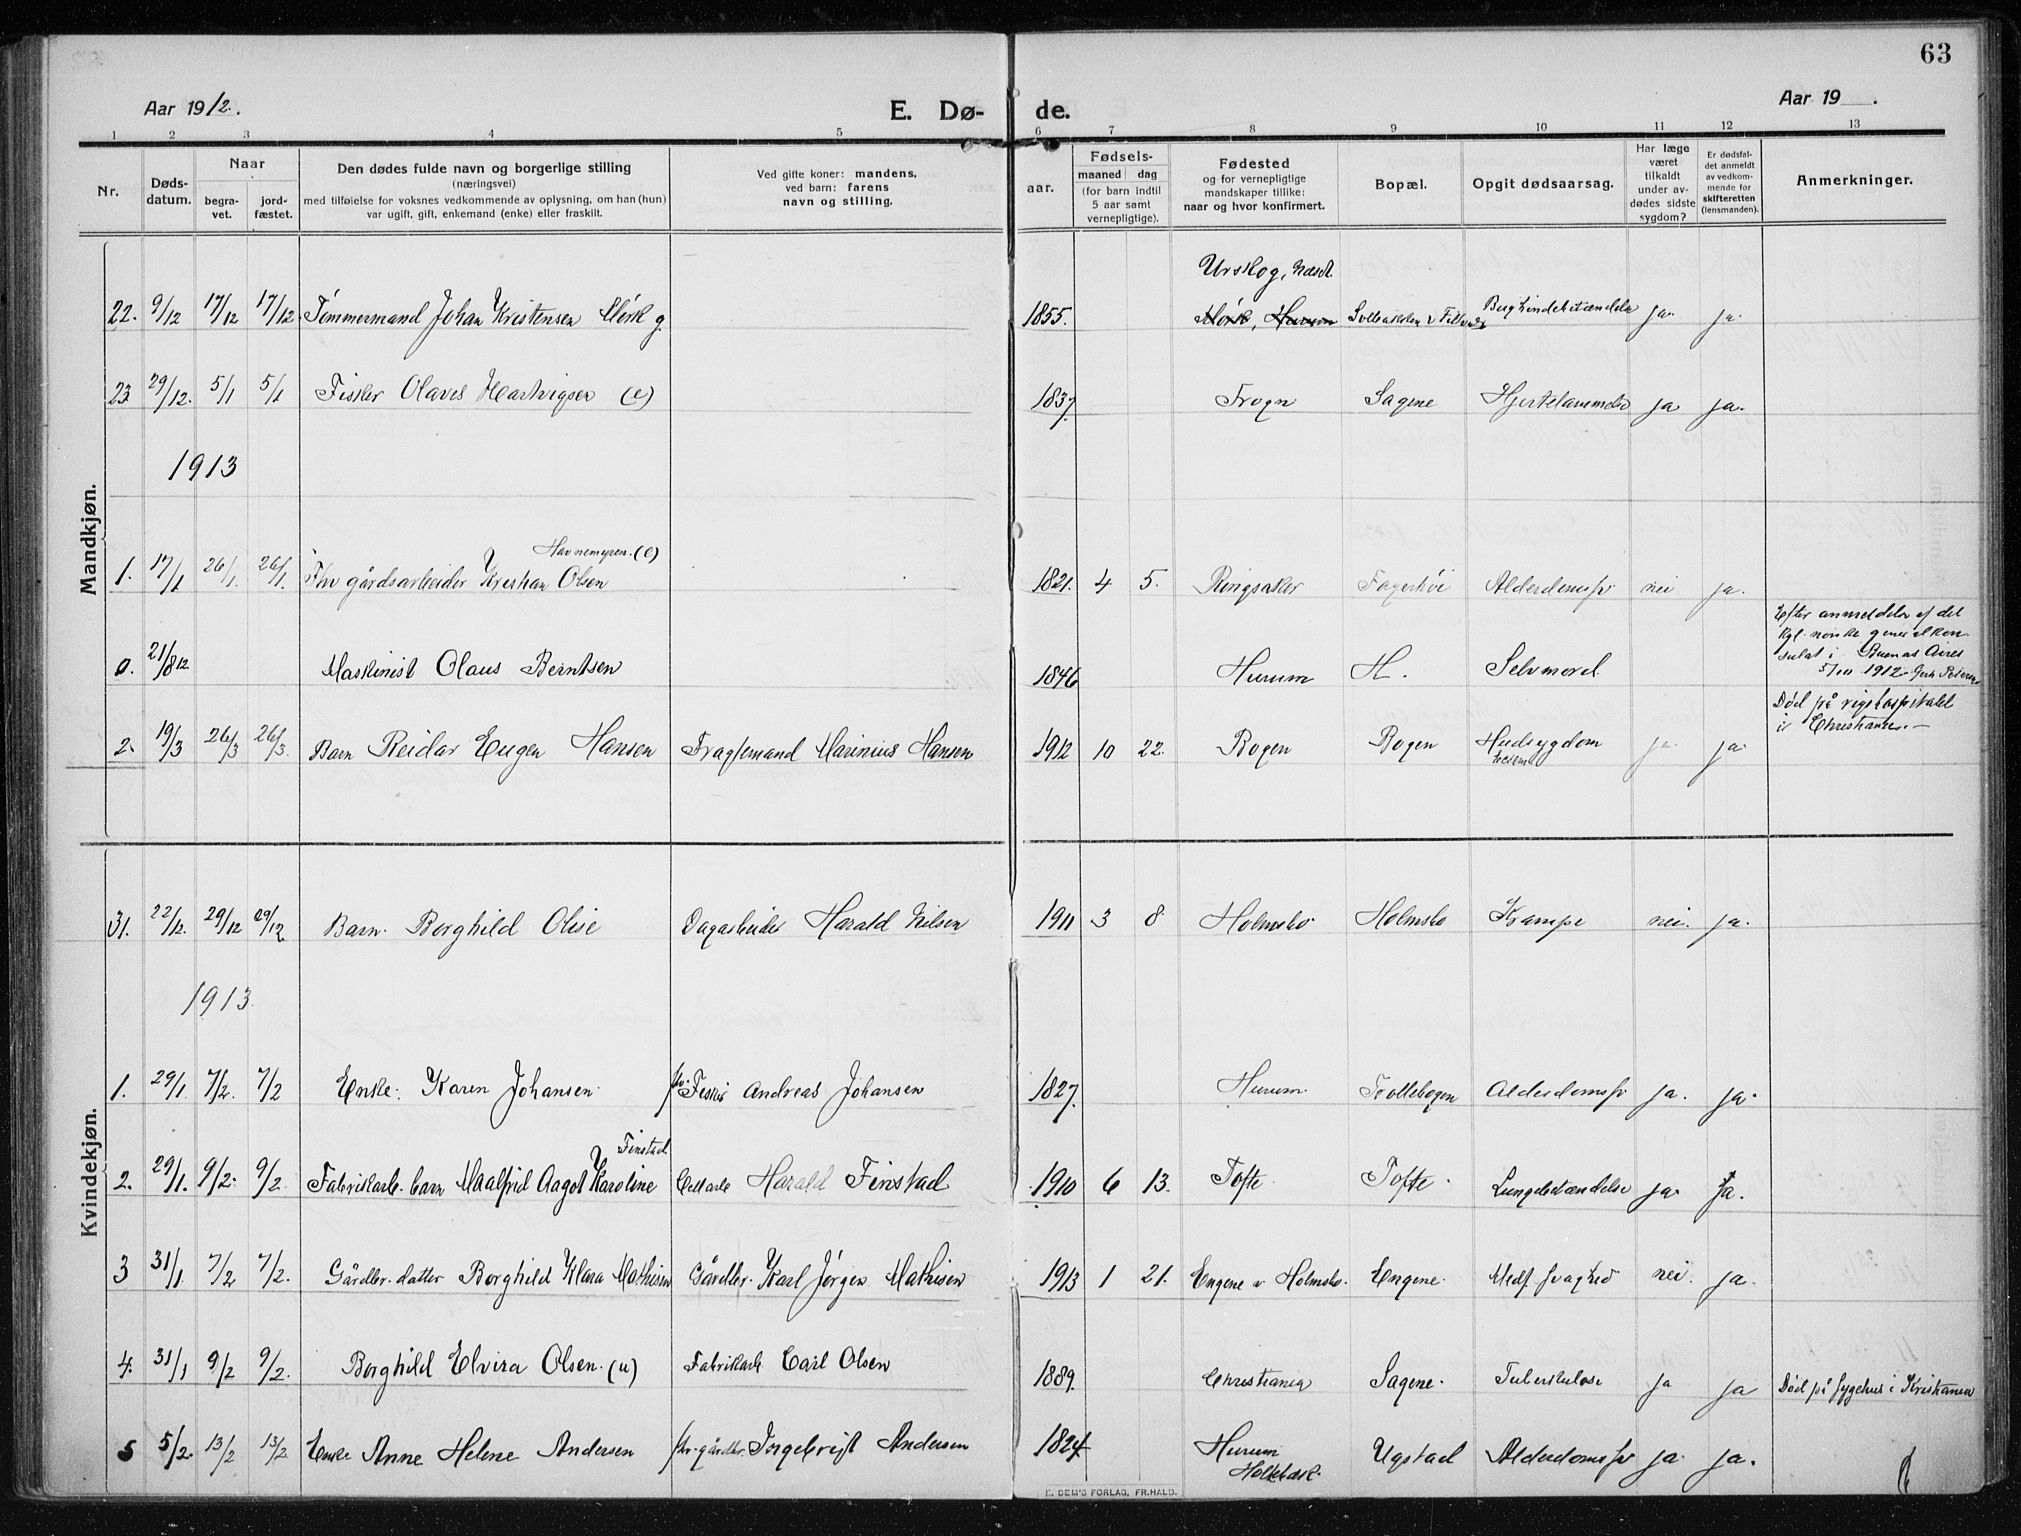 63
Aar 1912.
E. Dø- de.
Aar 19 .
1 2 3 4 5 6 7 8 9 10 11 12 13
Nr.
Døds-
datum.
Naar
begra-
vet.
jord-
fæstet.
Den dødes fulde navn og borgerlige stilling
(næringsvei)
med tilføielse for voksnes vedkommende av oplysning, om han (hun)
var ugift, gift, enkemand (enke) eller fraskilt.
Ved gifte koner: mandens,
ved barn: farens
navn og stilling.
aar.
Fødsels-
maaned dag
(for barn indtil
5 aar samt
vernepligtige).
Fødested
og for vernepligtige
mandskaper tillike:
naar og hvor konfirmert.
Bopæl.
Opgit dødsaarsag.
Har læge
været
tilkaldt
under av-
dødes sidste
sygdom?
Er dødsfal-
det anmeldt
av vedkom-
mende for
skifteretten
(lensmanden).
Anmerkninger.
Mandkjøn.
Urskog,
22. 9/12 17/12 17/12 Tømmermand Johan Kristensen Mørk g. 1855. Mørk, Hurum ja. ja.
23 29/12. 5/1 5/1 Fisker Olaves Hartvigsen (e) 1837. Frogn Sagene Hjertelammelse ja ja.
1913
Havnemyren. (e)
1. 17/1 26/1. 26/1. Fhv gårdsarbeider Kristian Olsen 1821. 4 5. Ringsaker Fagerhöi Alderdomssv nei ja.
0. 21/8 12. Maskinist Olaus Berntsen 1846 Hurum H. Selvmord
Efter anmeldelse af det
kgl. norske generalkon-
sulat i Buenas Aires
5/10 1912
2. 19/3 26/3 26/3. Barn Reidar Eugen Hansen Fragtemand Marinius Hansen 1912 10 22. Bogen Bogen Hudsygdom ja. ja.
Død på rigshospitalet
i Christiania. —
Kvindekjøn.
31. 22/12. 29/12 29/12 Barn. Borghild Olise Dagarbeider Harald Nilsen 1911 3 8. Holmsbo Holmsbo Krampe nei. ja.
1913.
1. 29/1. 7/2. 7/2 Enke: Karen Johansen. fhv. Fisker Andreas Johansen 1827. Hurum. Trollebogen Alderdomssv ja. ja.
Finstad
2. 29/1. 9/2. 9/2. Fabrikarb. barn Maalfrid Aagot Karoline Cellarb Harald Finstad 1910 6 13. Tofte. Tofte. Lungebetændelse ja. Ja.
3 31/1. 7/2 7/2. Gårdbr. datter Borghild Klara Mathisen Gårdbr. Karl Jørgen Mathisen 1913 1 21. Engene v Holmsbo. Engene. Medf svaghed nei. ja.
4. 31/1 9/2 9/2. Borghild Elvira Olsen. (u) Fabrikarb Carl Olsen 1889. Christiania Sagene. Tuberkulose ja ja Død på sygehus i Kristiania
5 5/2. 13/2 13/2 Enke Anne Helene Andersen fhv. gårdbr. Ingebrigt Andersen 1824 Hurum Ugstad Alderdomssv ja. ja.
Holtebæk.
E. SEM'S FORLAG, FR.HALD.